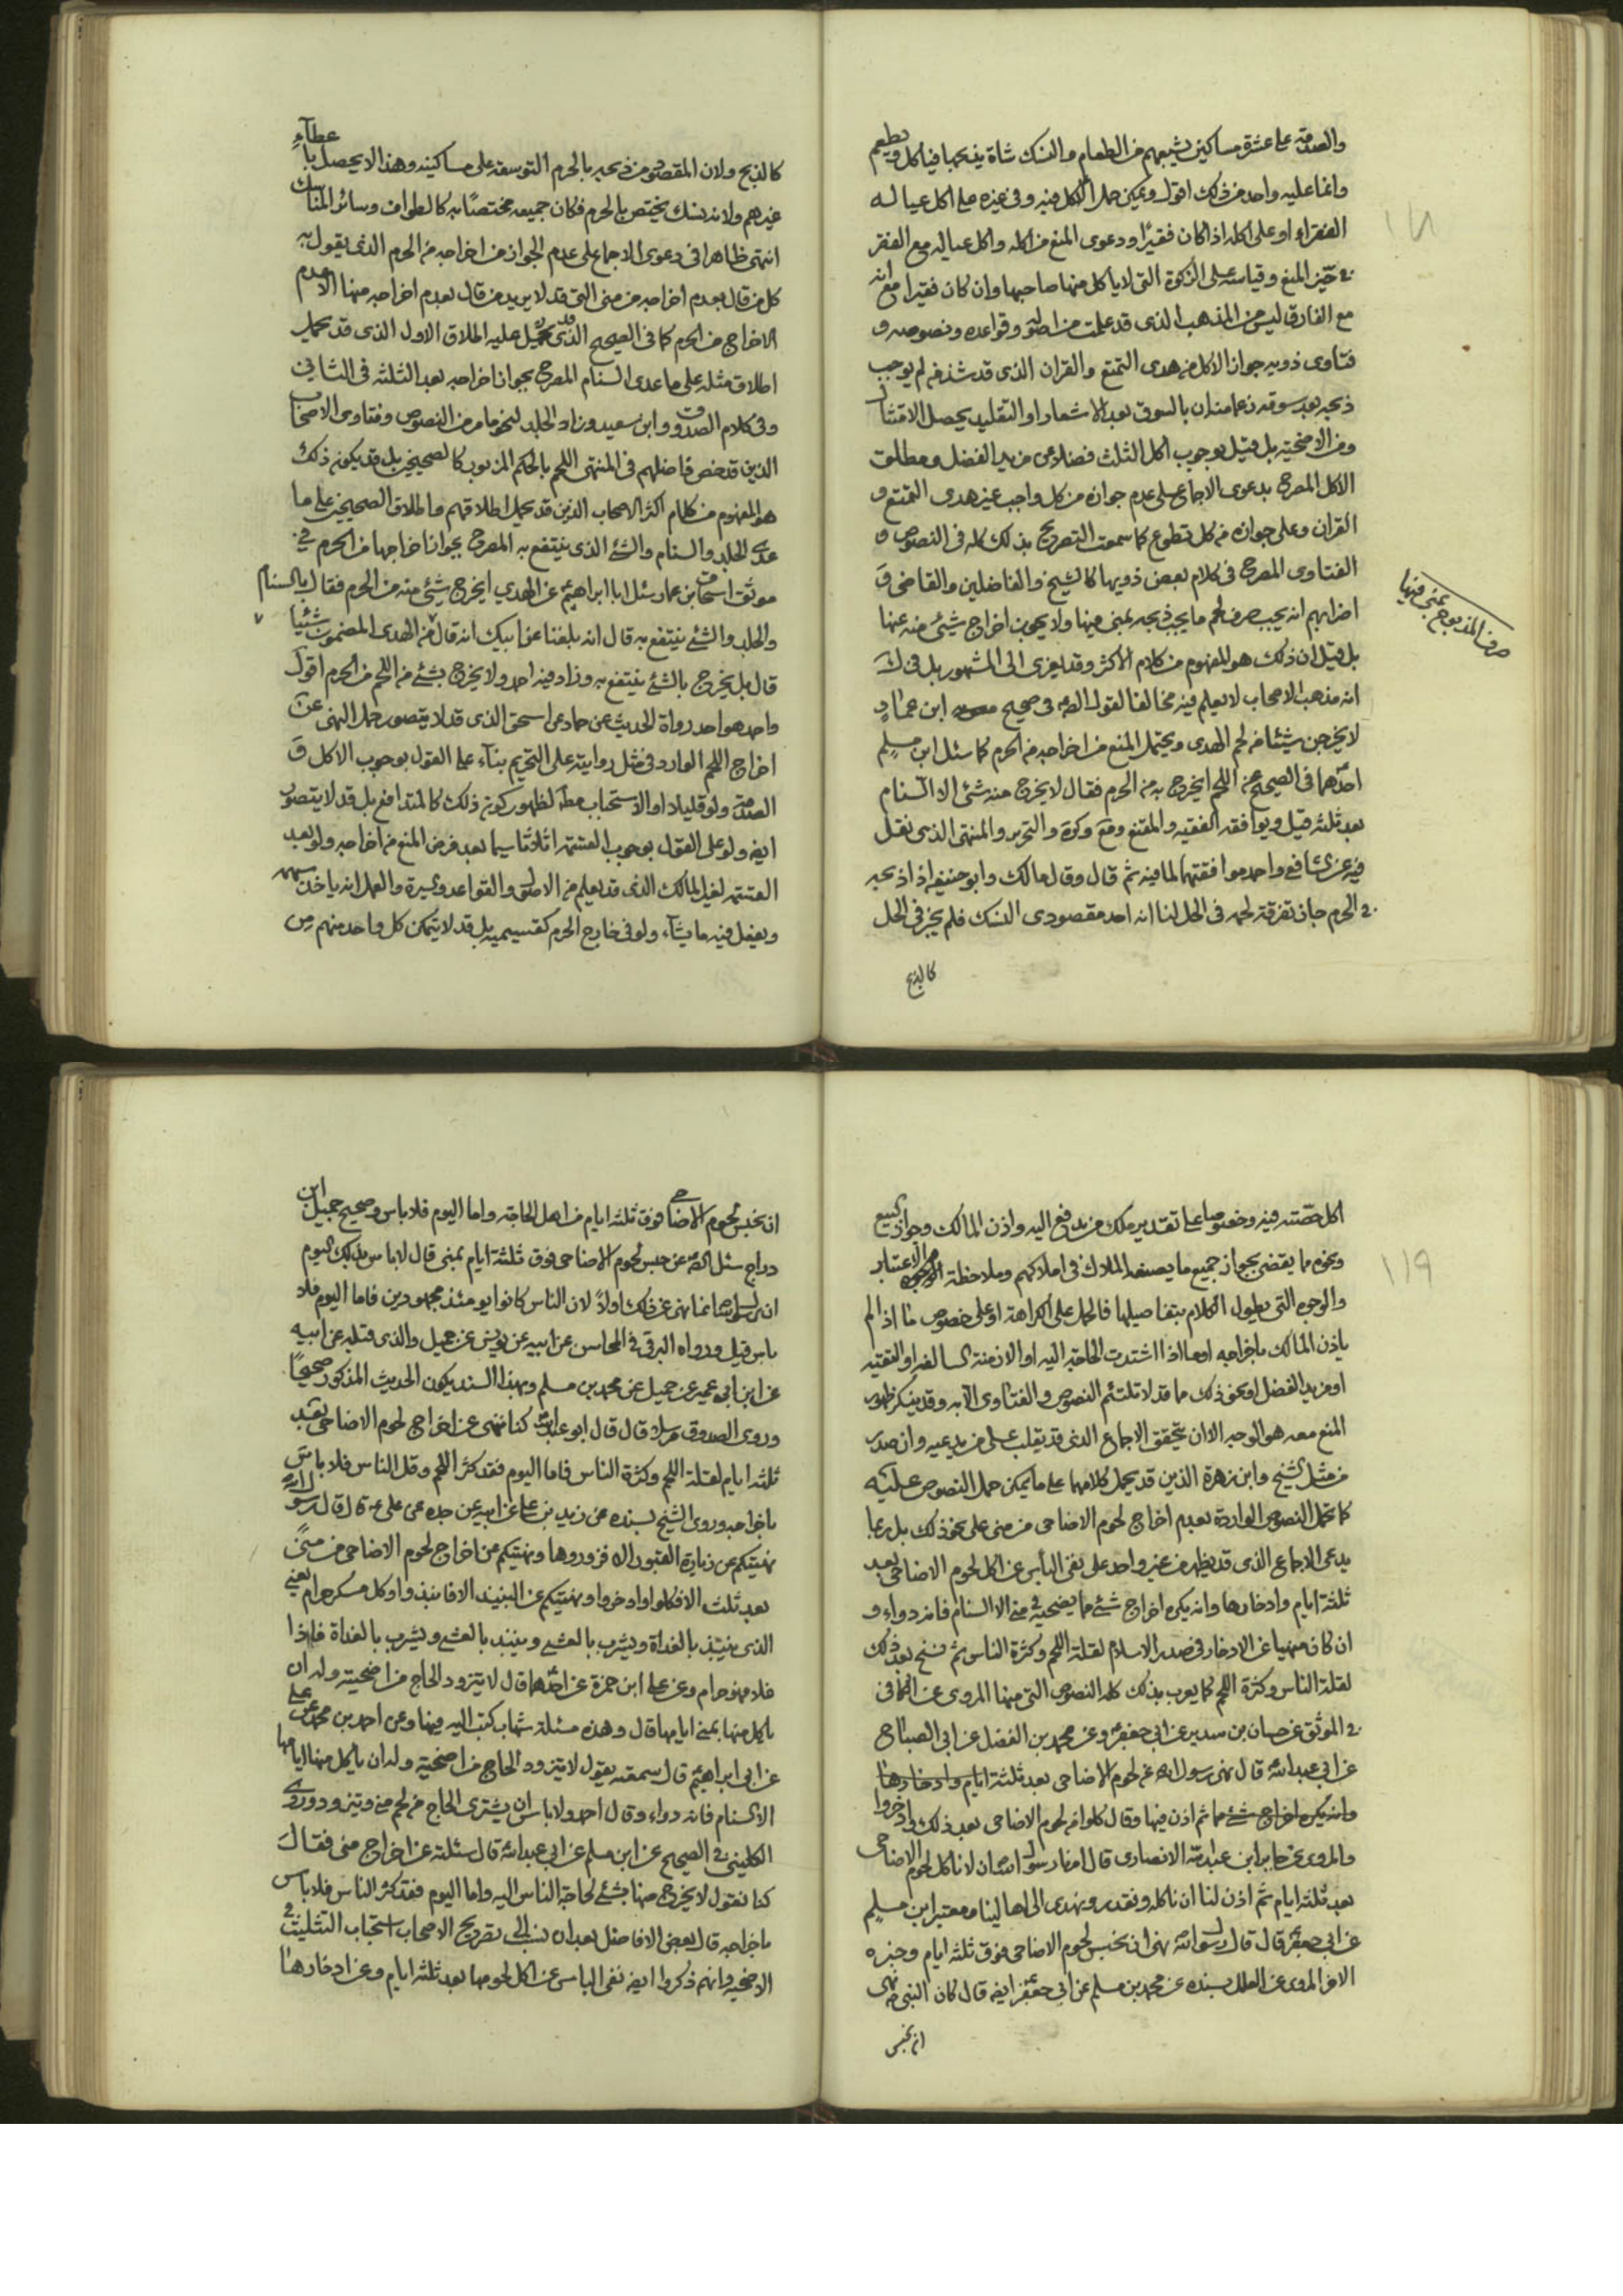 والصدقة على عشرة مساكين يشبعهم من الطعام والنسك شاة يذبحها فياكل ويطعم
وانما عليه واحد من ذلك اقول ويمكن حمل الاكل فيه وفى غيره على اكل عياله
الفقراء او على اكله اذا كان فقيرا ودعوى المنع من اكله واكل عياله مع الفقر
فى حيّز المنع وقياسه على الزكوة التى لا ياكل منها صاحبها وان كان فقيرا مع انه
مع الفارق ليس من المذهب الذى قد علمت من اصوله وقواعده ونصوصه و
فتاوى ذويه جواز الاكل من هدى التمتع والقران الذى قد شذ من لم يوجب
ذبحه بعد سوقه زعما منه ان بالسوق بعد الاشعار او التقليد يحصل الامتثال
ومن الاضحية بل قيل بوجوب اكل الثلث فضلا عن مزيد الفضل ومطلق
الاكل المصرح بدعوى الاجماع على عدم جوازه من كل واجب غير هدى التمتع و
القران وعلى جوازه من كل تطوع كما سمعت التصريح بذلك كله فى النصوص و
الفتاوى المصرح فى كلام بعض ذويها كالشيخ والفاضلين والقاضى و
اضرابهم انه يجب صرف لحم ما يجب ذبحه بمنى فيها ولا يجوز اخراج شئ منه عنها
صرف المذبوح بمنى فيها
بل قيل ان ذلك هو المفهوم من كلام الاكثر وقد يعزى الى المشهور بل فى ك
انه مذهب الاصحاب لا يعلم فيه مخالفا لقوله الصه فى صحيح ابن عمار
لا يخرجن شيئا من لحم الهدى ويحتمل المنع من اخراجه من الحرم كما سئل ابن مسلم
احدهما فى الصحيح عن اللحم ايخرج به من الحرم فقال لا يخرج منه شئ الا السنام
بعد ثلثة قيل ويوافقه الفقيه والمقنع ومع وكرة والتحرير والمنتهى الذى نقل
فيه عن الشافعى واحمد موافقتهما لما فيه ثم قال وقال مالك وابو حنيفه اذا ذبحه
فى الحرم جاز تفرقة لحمه فى الحل لنا انه احد مقصودى النسك فلم يجز فى الحل
كالذبح
كالذبح ولان المقصود من ذبحه بالحرم التوسعة على مساكينه وهذا لا يحصل باعطاء
غيرهم ولانه نسك يختص بالحرم فكان جميعه مختصا به كالطواف وسائر المناسك
انتهى ظاهرا فى دعوى الاجماع على عدم الجواز من اخراجه من الحرم الذى يقول به
كل من قال بعدم اخراجه من منى التى قد لا يريد من قال بعدم اخراجه منها الا عدم
الاخراج من الحرم كما فى الصحيح الذى قد يحمل عليه اطلاق الاول الذى قد يحمل
اطلاق مثله على ما عدى السنام المصرح بجواز اخراجه بعد الثلثة فى الثانى
وفى كلام الصدوق وابن سعيد وزاد الجلد لنحو ما مر من النصوص وفتاوى الاصحاب
الذين قد خص فاضلهم فى المنتهى اللحم بالحكم المزبور كالصحيحين بل قد يكون ذلك
هو المفهوم من كلام اكثر الاصحاب الذين قد يحمل اطلاقهم واطلاق الصحيحين على ما
عدى الجلد والسنام والشئ الذى ينتفع به المصرح بجواز اخراجها من الحرم فى
موثق اسحق بن عمار سئل ابا ابراهيم عن الهدي ايخرج شئ منه من الحرم فقال بالسنام
والجلد والشئ ينتفع به قال انه بلغنا عن ابيك انه قال من الهدى المضمون شيئا
قال بل يخرج بالشئ ينتفع به وزاد فيه احمد ولا يخرج بشئ من اللحم من الحرم اقول
واحمد هو احد رواة الحديث عن حماد عن اسحق الذى قد لا يتصور حمل النهى عن
اخراج اللحم الوارد فى مثل روايته على التحريم بناء على القول بوجوب الاكل و
الصدقة ولو قليلا او الاستحباب مطلقا لظهور كون ذلك كالمتدافع بل قد لا يتصور
ايضه ولو على القول بوجوب القسمة اثلاثا سيما بعد فرض المنع من اخراجه ولو بعد
القسمة لغير المالك الذى قد يعلم من الاصول والقواعد والسيرة والعمل انه ياخذ سهمه
ويفعل فيه ما يشاء ولو فى خارج الحرم كقسيميه بل قد لا يتمكن كل واحد منهم من
اكل حصته فيه وخصوصا على تقدير ملك من يدفع اليه واذن المالك وجواز البيع
ونحوه مما يقضى بجواز جميع ما يصنعه الملاك فى املاكهم وملاحظة الاعتبار
والوجوه التى يطول الكلام بتفاصيلها فالحمل على الكراهة او على خصوص ما اذا لم
ياذن المالك باخراجه او ما اذا اشتدت الحاجة اليه او الازمنة السالفة او التقيه
او مزيد الفضل او نحو ذلك ما قد لا تلتئم النصوص والفتاوى الا به وقد ينكر ظهور
المنع معه هو الوجه الا ان يتحقق الاجماع الذى قد يقلب على من يدعيه وان صدر
من مثل الشيخ وابن زهرة الذين قد يحمل كلامهما على ما يمكن حمل النصوص عليه
كما تحمل النصوص الواردة بعدم اخراج لحوم الاضاحى من منى على نحو ذلك بل ربما
يدعى الاجماع الذى قد يظهر من غير واحد على نفى البأس عن اكل لحوم الاضاحى بعد
ثلثة ايام وادخارها وانه يكره اخراج شئ مما يضحيه فى منى الا السنام فانه دواء و
ان كان منهيا عن الادخار فى صدر الاسلام لقلة اللحم وكثرة الناس ثم نسخ بعد ذلك
لقلة الناس وكثرة اللحم كما يعرب بذلك كله النصوص التى منها المروى عن الكافى
فى الموثق عن حسان بن سدير عن ابى جعفر وعن محمد بن الفضل عن ابى الصباح
عن ابى عبد الله قال نهى رسول الله عن لحوم الاضاحى بعد ثلثة ايام وادخارها
وانه يكره اخراج شئ مما ثم اذن فيها وقال كلوا من لحوم الاضاحى بعد ذلك وادخروا
والمروى عن جابر ابن عبد الله الانصارى قال امرنا رسول الله ان لا ناكل لحوم الاضاحى
بعد ثلثة ايام ثم اذن لنا ان ناكله ونقدد ونهدى الى اهالينا ومعتبر ابن مسلم
عن ابى جعفر قال قال رسول الله نهى ان يحبس لحوم الاضاحى فوق ثلثة ايام وخبره
الاخر المروى عن العلل بسنده عن محمد بن مسلم عن ابى جعفر ايضه قال كان النبى نهى
ان يحبس
ان يحبس لحوم الاضاحى فوق ثلثة ايام من اهل الحاجة واما اليوم فلا باس وصحيح جميل ابن
دراج سئل الصه عن حبس لحوم الاضاحى فوق ثلثة ايام بمنى قال لا باس بذلك اليوم
ان رسول الله انما نهى عن ذلك اولا لان الناس كانوا يومئذ مجهودين فاما اليوم فلا
باس قيل ورواه البرقى فى المحاسن عن ابيه عن يونس عن جميل والذى قبله عن ابيه
عن ابن ابى عمير عن جميل عن محمد بن مسلم وبهذا السند يكون الحديث المذكور صحيحا
وروى الصدوق مرسلا قال قال ابو عبد الله كنا ننهى عن اخراج لحوم الاضاحى بعد
ثلثة ايام لقلة اللحم وكثرة الناس فاما اليوم فقد كثر اللحم وقل الناس فلا باس
باخراجه وروى الشيخ بسنده عن زيد بن على عن ابيه عن جده عن على ع قال قال رسول الله
نهيتكم عن زيارة القبور الا فزوروها ونهيتكم عن اخراج لحوم الاضاحى من منى
بعد ثلث الا فكلوا وادخروا ونهيتكم عن النبيذ الا فانبذوا وكل مسكر حرام يعنى
الذى ينبذ بالغداة ويشرب بالعشى وينبذ بالعشى ويشرب بالغداة فاذا
غلا فهو حرام وعن على ابن حمزة عن احدهما قال لا يتزود الحاج من اضحيته وله ان
ياكل منها بمنى ايامها قال وهذه مسئلة شهاب كتب اليه فيها وعن احمد بن محمد عن على
عن ابى ابراهيم قال سمعته يقول لا يتزود الحاج من اضحيته وله ان ياكل منها ايامها
الا السنام فانه دواء وقال احمد ولا باس ان يشترى الحاج من لحم منى ويتزوده وروى
الكلينى فى الصحيح عن ابن مسلم عن ابى عبد الله قال سئلته عن اخراج منى فقال
كنا نقول لا يخرج منها بشئ لحاجة الناس اليه واما اليوم فقد كثر الناس فلا باس
باخراجه قال بعض الافاضل بعد ان نسب الى تصريح الاصحاب استحباب التثليث فى
الاضحية وانهم ذكروا ايضه نفى الباس عن اكل لحومها بعد ثلثة ايام وعن ادخارها